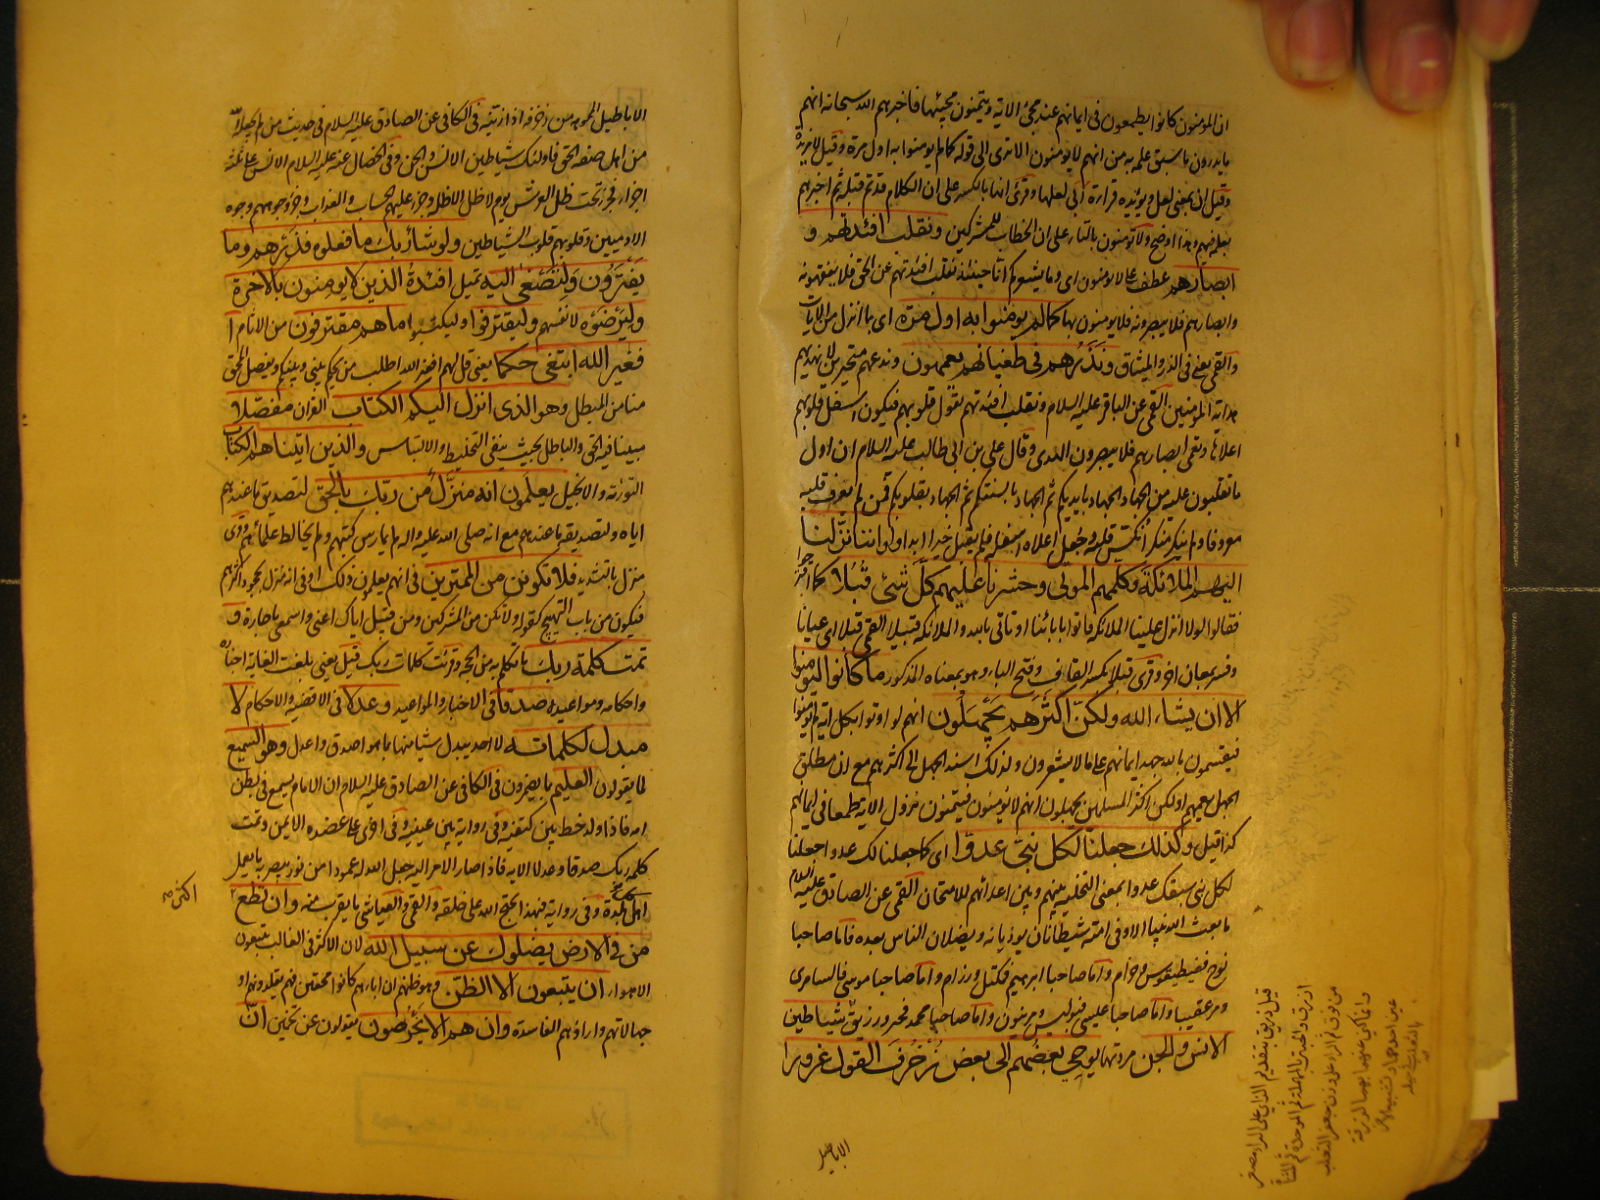 ان المؤمنون كانوا يطمعون في ايمانهم عند مجئ الاية ويتمنون مجيئها فاخبرهم الله سبحانه انهم
ما يدرون ما سبق علمه به من انهم لا يؤمنون الا ترى الى قوله كما لم يؤمنوا به اول مرة وقيل لا مزيدة
وقيل ان بمعنى لعل ويؤيده قراءة ابي لعلها وقرئ انها بالكسر على ان الكلام قد تم قبله ثم اخبرهم
بعلمه فيهم وهذا اوضح ولا تؤمنون بالتاء على ان الخطاب للمشركين ونقلب افئدتهم و
ابصارهم عطف على لا يؤمنون اى وما يشعركم انا حينئذ نقلب افئدتهم عن الحق فلا يفقهونه
وابصارهم فلا يبصرونه فلا يؤمنون بها كما لم يؤمنوا به اول مرة اى بما انزل من الايات
والقمي يعني في الذر والميثاق ونذرهم في طغيانهم يعمهون وندعهم متحيرين لا نهديهم
هداية المؤمنين القمي عن الباقر عليه السلام ونقلب افئدتهم نقول قلوبهم فيكون اسفل قلوبهم
اعلاها ونعمى ابصارهم فلا يبصرون الهدى وقال علي بن ابي طالب عليه السلام ان اول
ما تغلبون عليه من الجهاد الجهاد بايديكم ثم الجهاد بالسنتكم ثم الجهاد بقلوبكم فمن لم يعرف قلبه
معروفا ولم ينكر منكرا نكس قلبه وجعل اعلاه اسفله فلم يقبل خيرا ابدا ولو اننا نزلنا
اليهم الملائكة وكلمهم الموتى وحشرنا عليهم كل شئ قبلا كما اقترحوا
فقالوا لولا انزل علينا الملائكة فاتوا بابائنا او تاتي بالله والملائكة قبيلا القمي قبلا اى عيانا
وفسر بمعان اخر وقرئ قبلا بكسر القاف وفتح الباء وهو بمعناه المذكور ما كانوا ليؤمنوا
الا ان يشاء الله ولكن اكثرهم يجهلون انهم لو اوتوا بكل اية لم يؤمنوا
فيقسمون بالله جهد ايمانهم على ما لا يشعرون ولذلك اسند الجهل الى اكثرهم مع ان مطلق
الجهل يعمهم او لكن اكثر المسلمين يجهلون انهم لا يؤمنون فيتمنون نزول الاية طمعا في ايمانهم
كذا قيل وكذلك جعلنا لكل نبي عدوا اى كما جعلنا لك عدوا جعلنا
لكل نبي سبقك عدوا بمعنى التخلية بينهم وبين اعدائهم للامتحان القمي عن الصادق عليه السلام
ما بعث الله نبيا الا وفي امته شيطانان يؤذيانه ويضلان الناس بعده فاما صاحبا
نوح فقيطيفوس وخرام واما صاحبا ابرهيم فمكثل ورزام واما صاحبا موسى فالسامرى
ومرعقيبا واما صاحبا عيسى فبولس ومريتون واما صاحبا محمد فحبتر ورزيق شياطين
الانس والجن مردتهما يوحي بعضهم الى بعض زخرف القول غرورا
الاباطيل
قيل زريق بتقديم الزاي على الراء مصغر
ازرق والحبتر بالمهملة ثم الموحدة ثم المثناة
من فوق ثم الراء على وزن جعفر الثعلب
الاباطيل المموهة من زخرفه اذا زينه في الكافي عن الصادق عليه السلام في حديث من لم يجعله الله
من اهل صفة الحق فاولئك شياطين الانس والجن وفي الخصال عنه عليه السلام الانس على ثلثة
اجزاء فجزء تحت ظل العرش يوم لا ظل الا ظله وجزء عليهم الحساب والعذاب وجزء وجوههم وجوه
الادميين وقلوبهم قلوب الشياطين ولو شاء ربك ما فعلوه فذرهم وما
يفترون ولتصغى اليه تميل افئدة الذين لا يؤمنون بالاخرة
وليرضوه لانفسهم وليقترفوا وليكتسبوا ما هم مقترفون من الاثام ا
فغير الله ابتغي حكما يعني قل لهم افغير الله اطلب من يحكم بيني وبينكم ويفصل المحق
منا من المبطل وهو الذي انزل اليكم الكتاب القران مفصلا
مبينا فيه الحق والباطل بحيث ينفي التخليط والالتباس والذين اتيناهم الكتاب
التورية والانجيل يعلمون انه منزل من ربك بالحق لتصديق ما عندهم
اياه ولتصديقه ما عندهم مع انه صلى الله عليه واله لم يمارس كتبهم ولم يخالط علمائهم وقرئ
منزل بالتشديد فلا تكونن من الممترين في انهم يعلمون ذلك او في انه منزل لجحود اكثرهم
فيكون من باب التهييج كقوله ولا تكونن من المشركين ومن قبيل اياك اعني واسمعي يا جارة و
تمت كلمة ربك ما تكلم به من الحجة وقرئت كلمات ربك قيل يعني بلغت الغاية اخباره
واحكامه ومواعيده صدقا في الاخبار والمواعيد وعدلا في الاقضية والاحكام لا
مبدل لكلماته لا احد يبدل شيئا منها بما هو اصدق واعدل وهو السميع
لما يقولون العليم بما يضمرون في الكافي عن الصادق عليه السلام ان الامام يسمع في بطن
امه فاذا ولد خط بين كتفيه وفي رواية بين عينيه وفي اخرى على عضده الايمن وتمت
كلمة ربك صدقا وعدلا الاية فاذا صار الامر اليه جعل الله له عمودا من نور يبصر به ما يعمل
اهل كل بلدة وفي رواية فبهذا يحتج الله على خلقه والقمي والعياشي ما يقرب منه وان تطع
اكثر
من في الارض يضلوك عن سبيل الله لان الاكثر في الغالب يتبعون
الاهواء ان يتبعون الا الظن وهو ظنهم ان اباءهم كانوا محقين فهم يقلدونهم او
جهالاتهم واراؤهم الفاسدة وان هم الا يخرصون يقولون عن تخمين ان